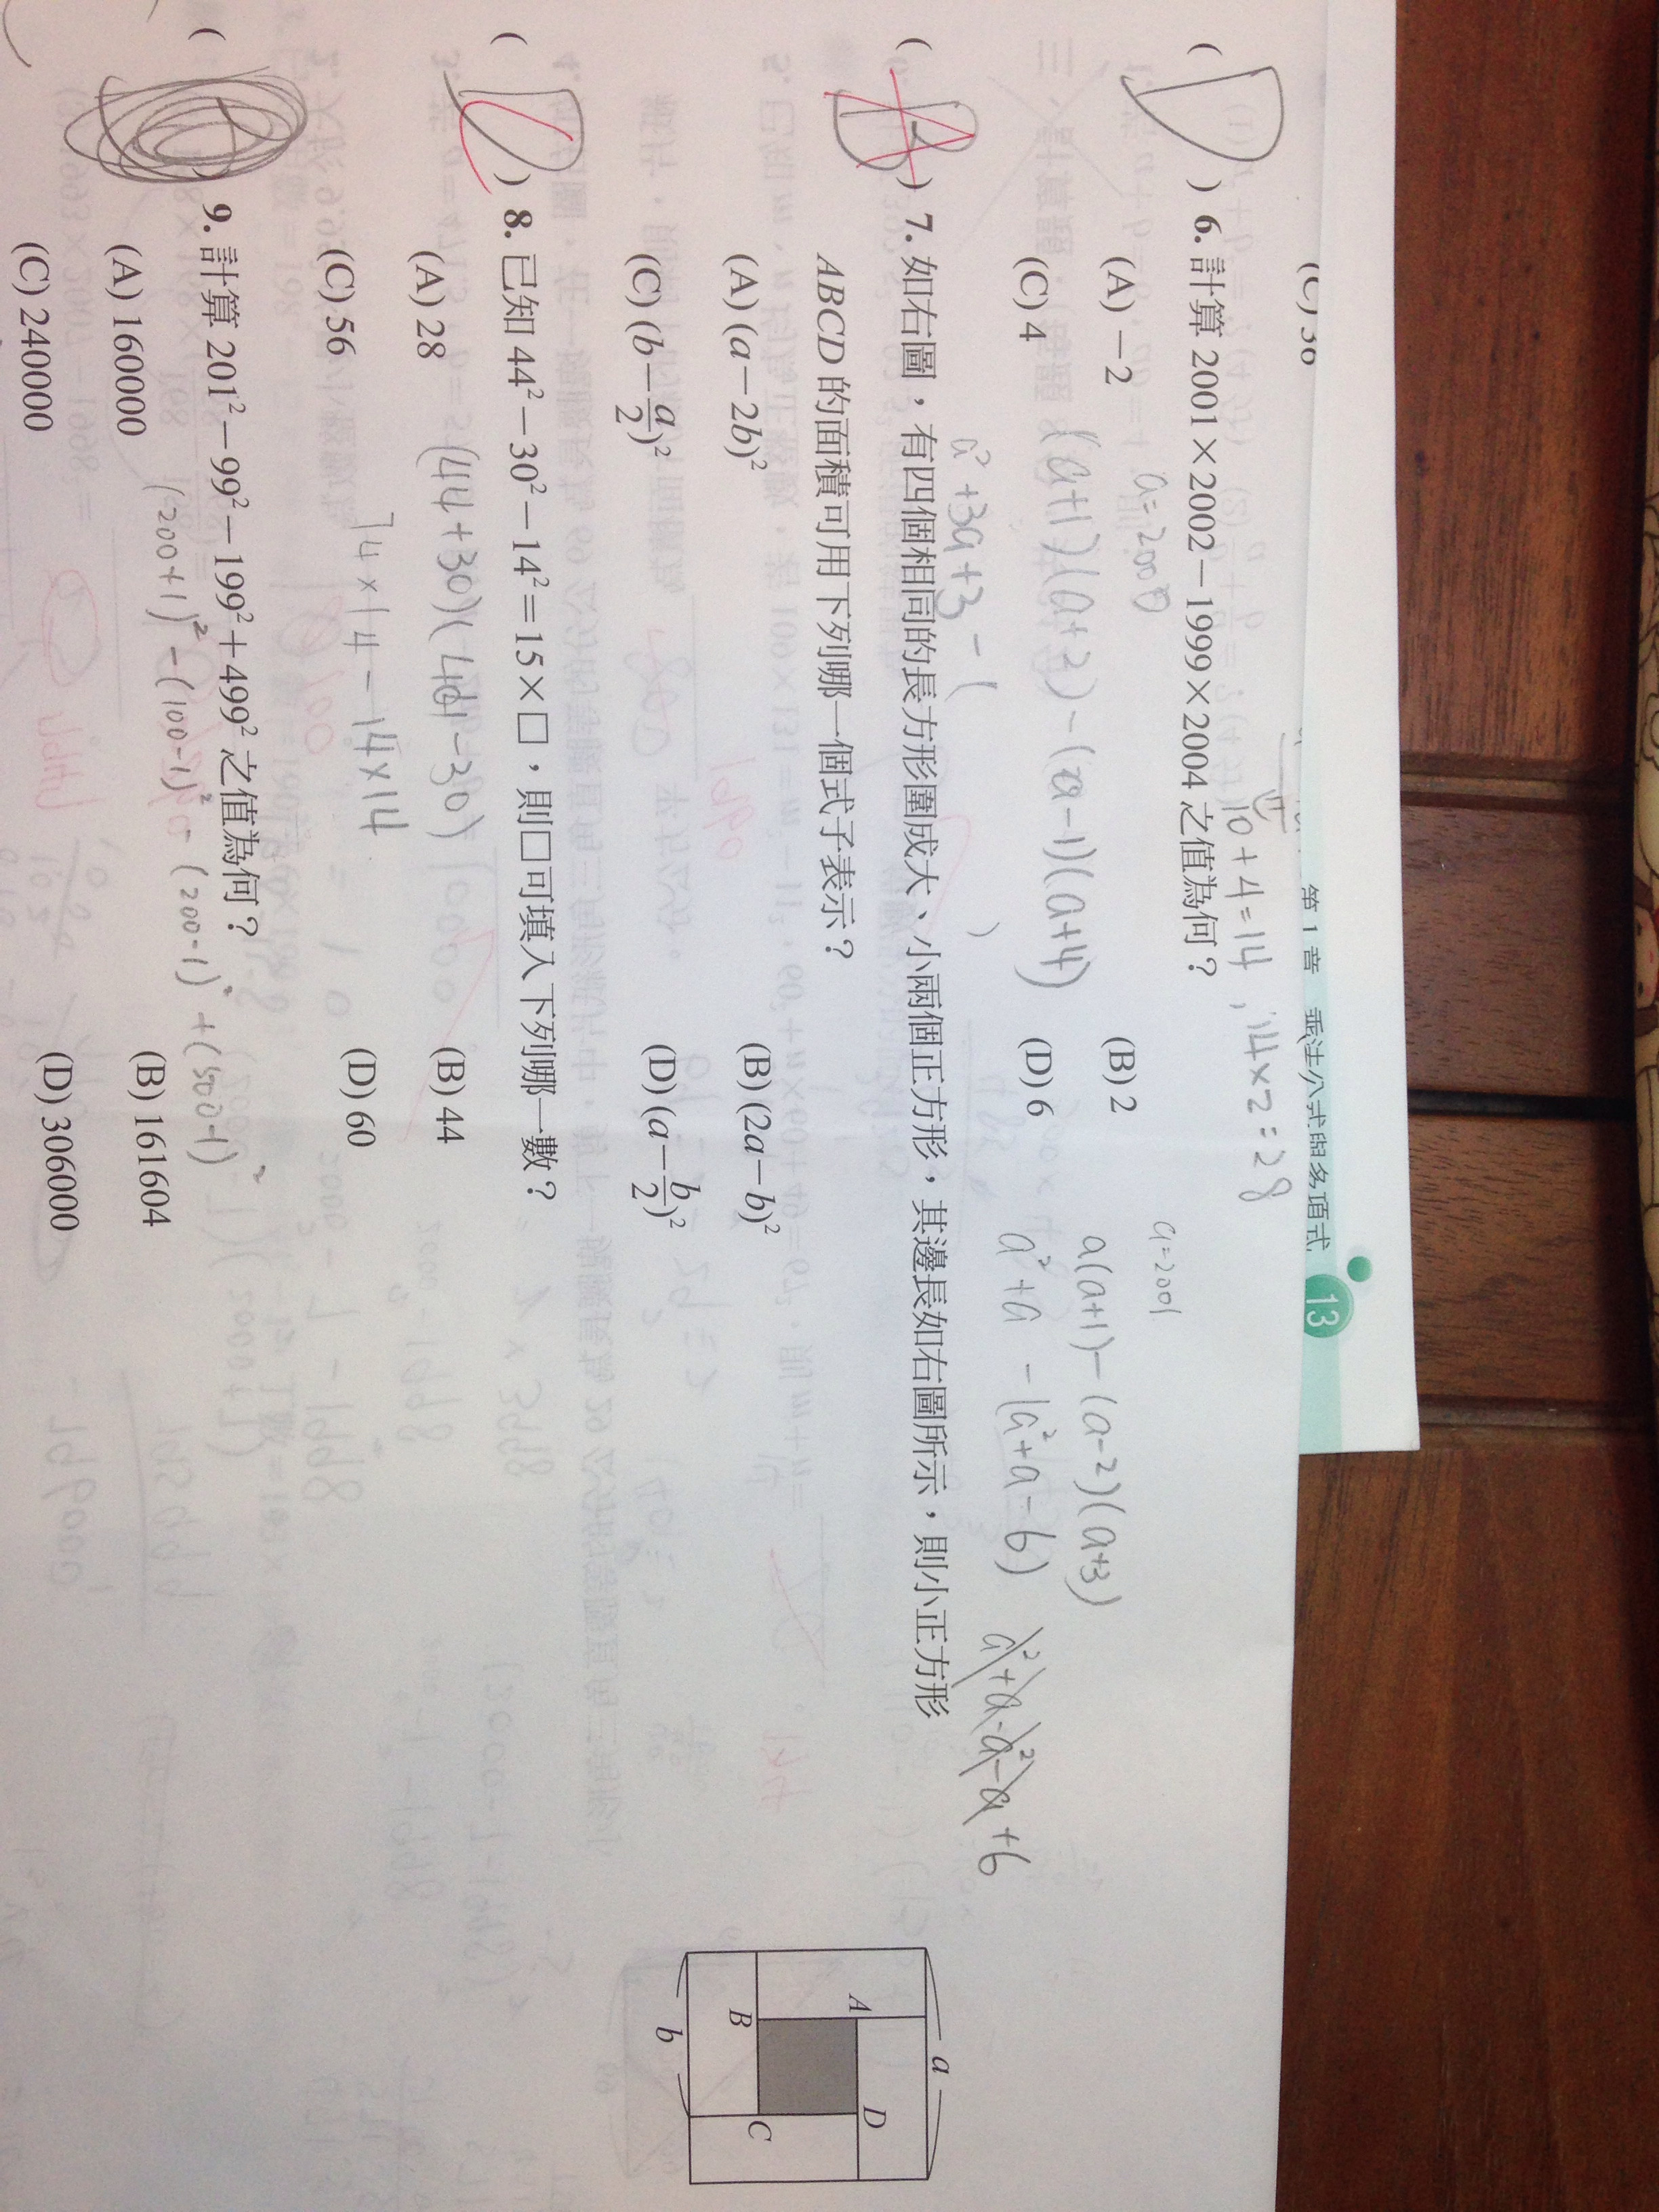 第 1 章 乘法公式與多項式 13
(C) 36
10+4=14, 14×2=28
( D ) 6. 計算 2001×2002－1999×2004 之值為何？
a=2000
a=2001
(A) －2 (B) 2
(a+1)(a+2)-(a-1)(a+4)
a(a+1)-(a-2)(a+3)
(C) 4 (D) 6
a²+a-(a²+a-6)
a²+a-a²-a+6
a²+3a+3-( )
( ) 7. 如右圖，有四個相同的長方形圍成大、小兩個正方形，其邊長如右圖所示，則小正方形
ABCD 的面積可用下列哪一個式子表示？
(A) (a－2b)² (B) (2a－b)²
(C) (b－a/2)² (D) (a－b/2)²
a
A D
B C
b
( D ) 8. 已知 44²－30²－14²＝15×□，則□可填入下列哪一數？
(A) 28 (B) 44
(44+30)(44-30)
(C) 56 (D) 60
74×14-14×14
( ) 9. 計算 201²－99²－199²＋499² 之值為何？
(200+1)²-(100-1)²-(200-1)²+(500-1)²
(A) 160000 (B) 161604
(C) 240000 (D) 306000